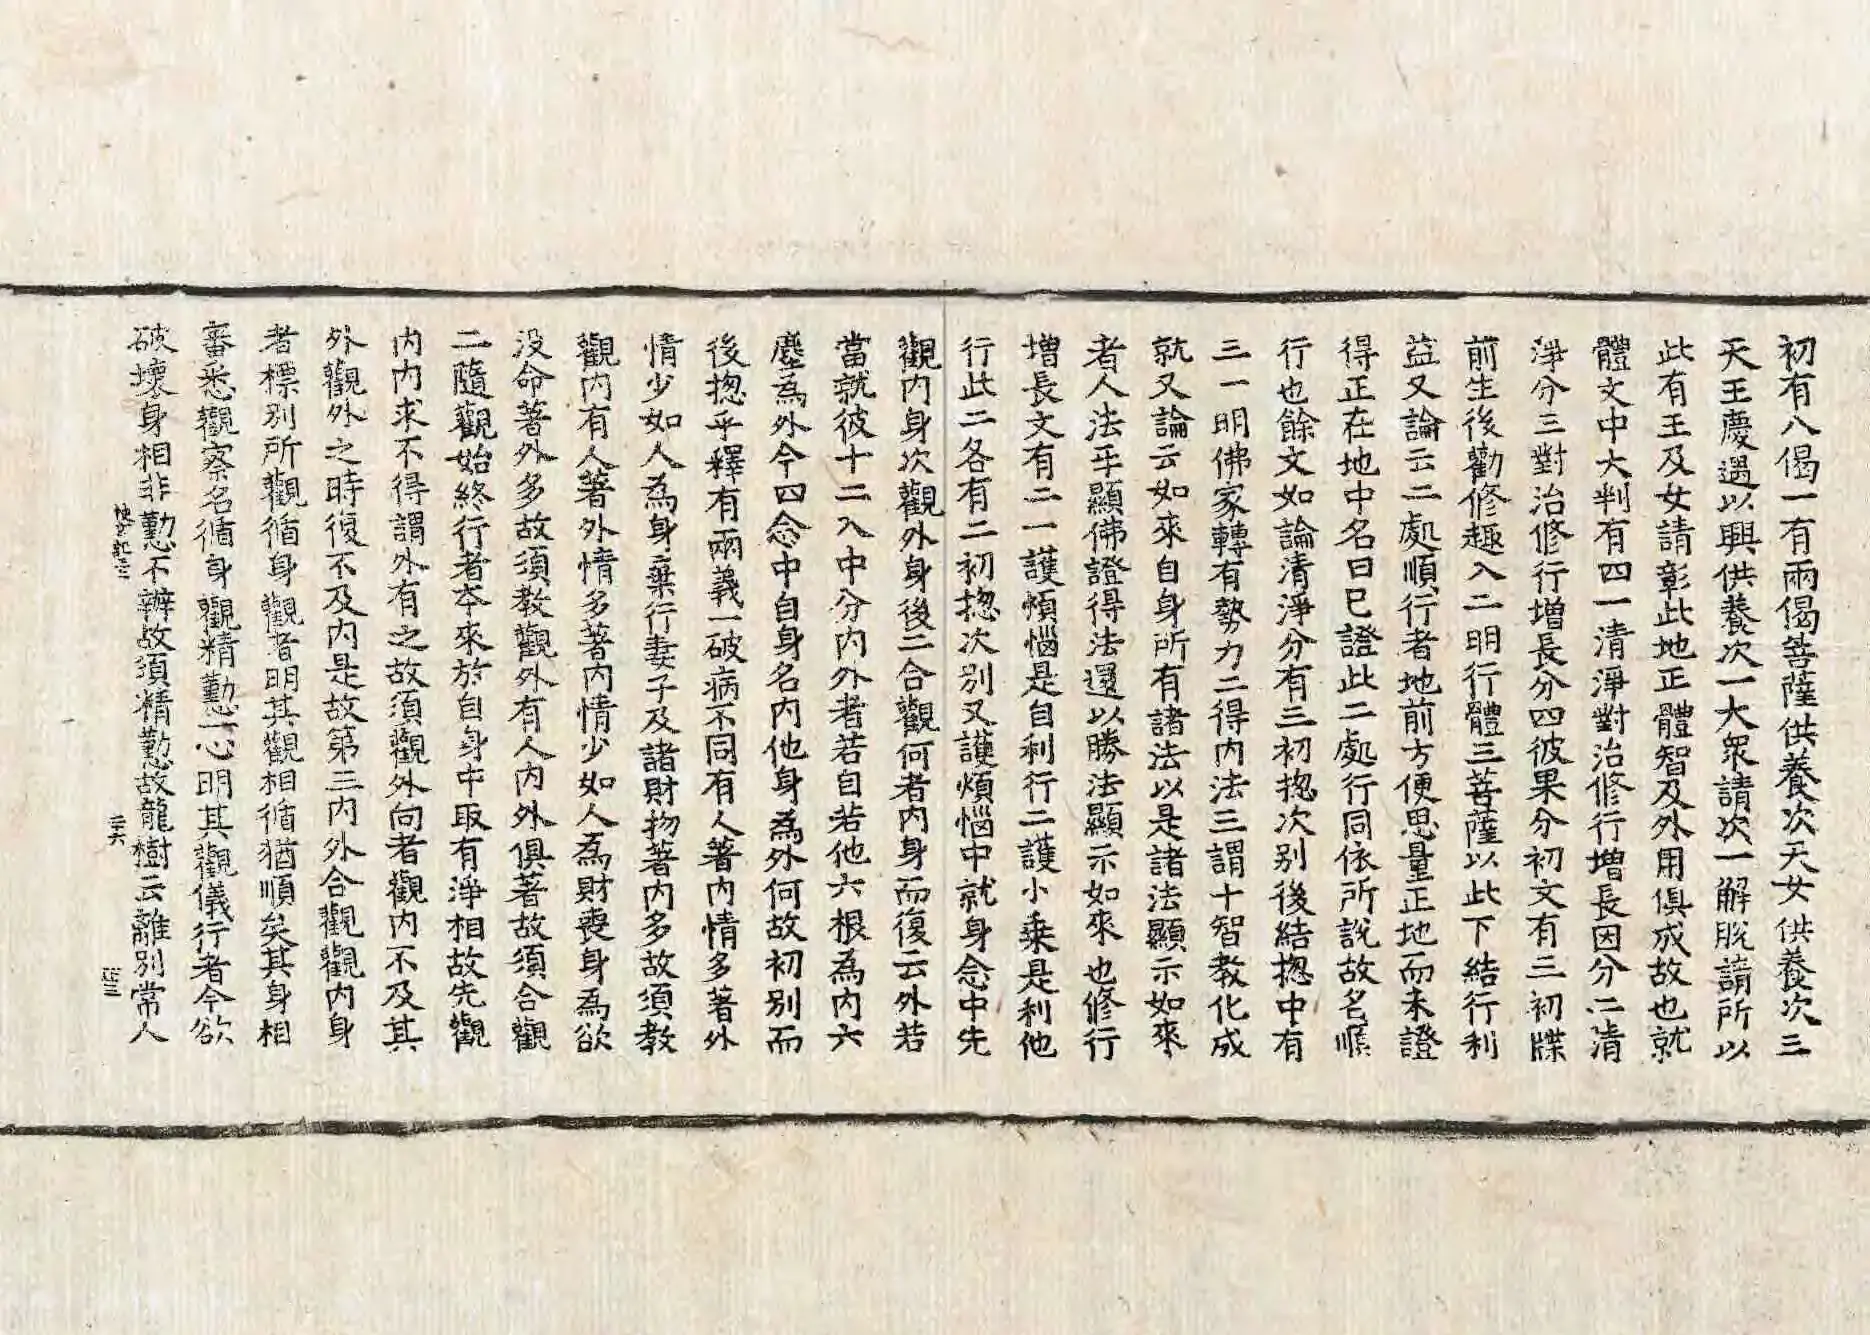 初有八偈一有兩偈菩薩供養次天女供養次三
天王慶遇以興供養次一大衆請次一解脫請所以
此有王及女請彰此地正體智及外用俱成故也就
體文中大判有四一清淨對治修行增長因分二清
淨分三對治修行增長分四彼果分初文有三初牒
前生後勸修趣入二明行體三菩薩以此下結行利
益又論云二處順行者地前方便思量正地而未證
得正在地中名曰已證此二處行同依所說故名順
行也餘文如論清淨分有三初揔次別後結揔中有
三一明佛家轉有勢力二得內法三謂十智教化成
就又論云如來自身所有諸法以是諸法顯示如來
者人法平顯佛證得法還以勝法顯示如來也修行
增長文有二一護煩惱是自利行二護小乘是利他
行此二各有二初揔次別又護煩惱中就身念中先
觀內身次觀外身後三合觀何者內身而復云外若
當就彼十二入中分內外者若自若他六根為內六
塵為外今四念中自身名內他身為外何故初別而
後揔乎釋有兩義一破病不同有人著內情多著外
情少如人為身棄行妻子及諸財物著內多故須教
觀內有人著外情多著內情少如人為財喪身為欲
没命著外多故須教觀外有人內外俱著故須合觀
二隨觀始終行者本來於自身中取有淨相故先觀
內內求不得謂外有之故須觀外向者觀內不及其
外觀外之時復不及內是故第三內外合觀觀內身
者標別所觀循身觀者明其觀相循猶順矣其身相
審悉觀察名循身觀精懃一心明其觀儀行者今欲
破壞身相非懃不辦故須精懃故龍樹云離別常人
二十六